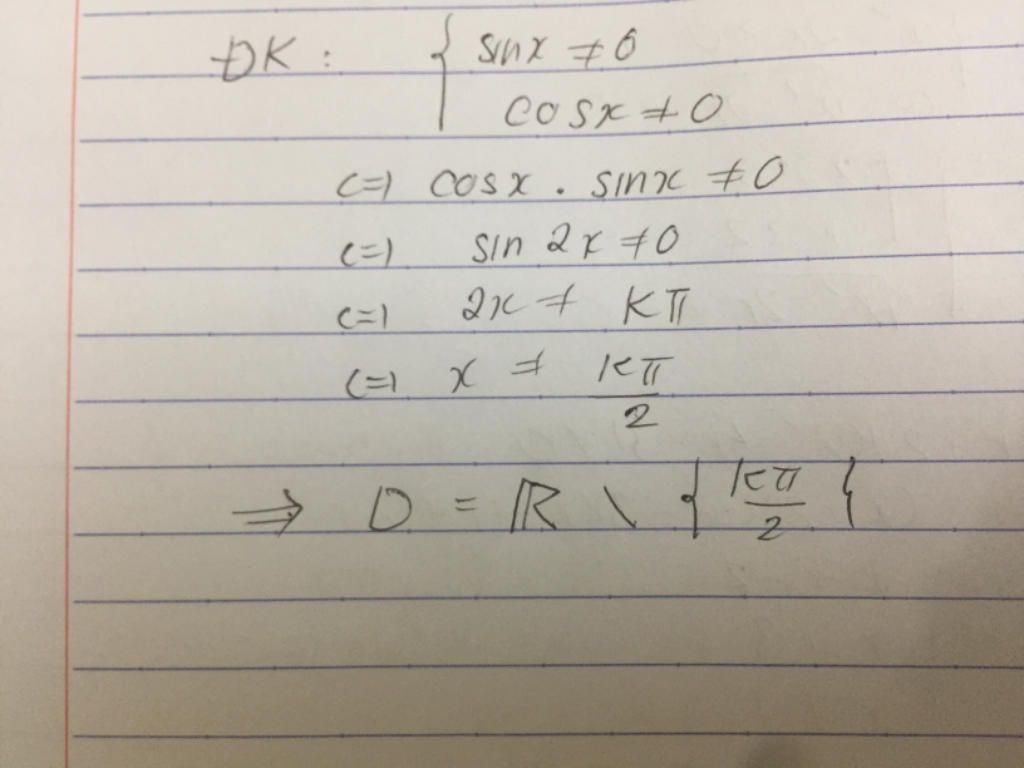 ĐK : { sinx ≠ 0
cosx ≠ 0
<=> cosx . sinx ≠ 0
<=> sin 2x ≠ 0
<=> 2x ≠ Kπ
<=> x ≠ Kπ/2
=> D = ℝ \ { Kπ/2 }